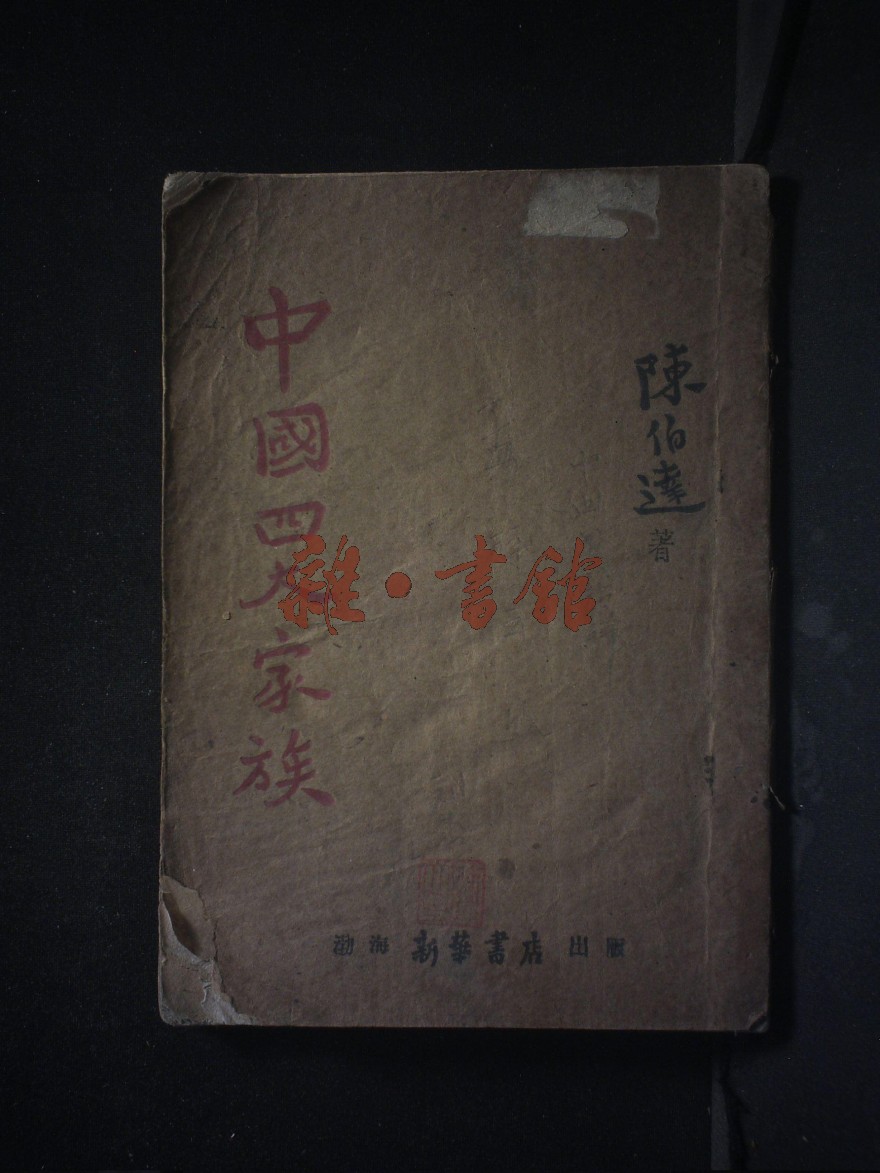 陳伯達著
中國四大家族
雜·書館
渤海新華書店出版